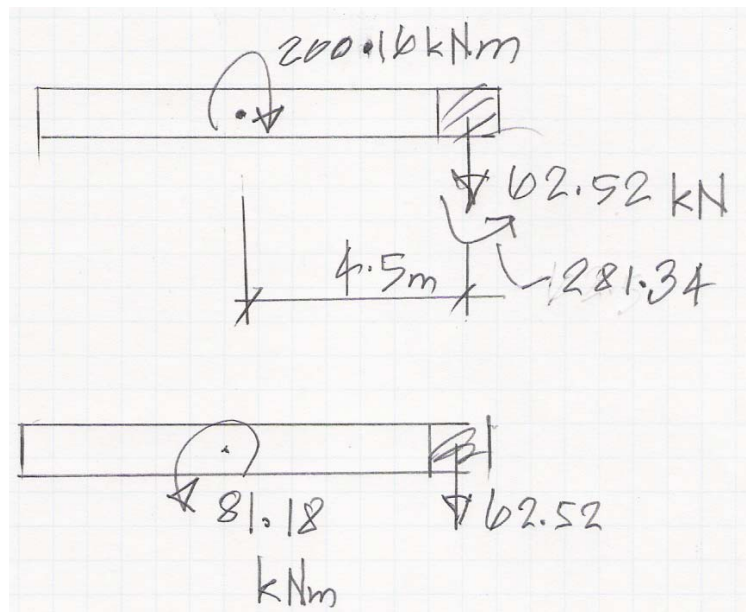 200.16 kNm
62.52 kN
4.5m
281.34
81.18
62.52
kNm